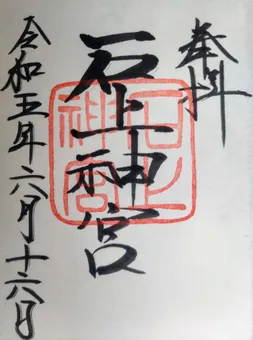 奉拝
石上神宮
石上神宮
令和五年六月十六日